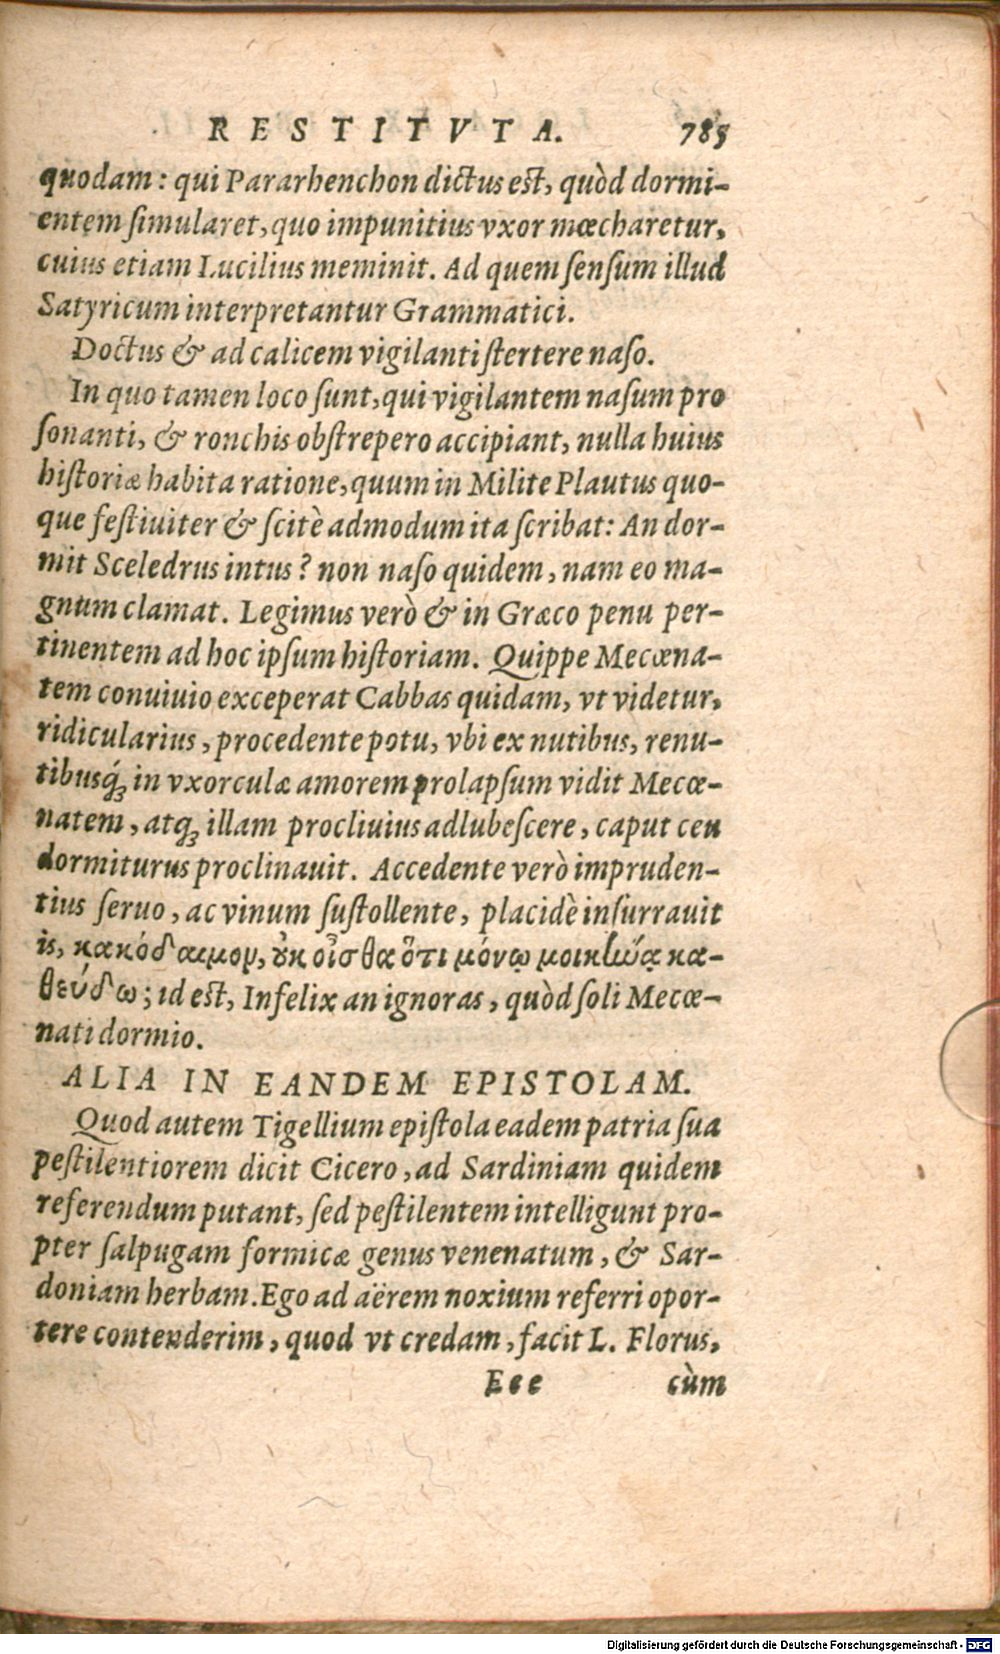 RESTITVTA. 785
quodam: qui Pararhenchon dictus est, quòd dormi-
entem simularet, quo impunitius vxor mœcharetur,
cuius etiam Lucilius meminit. Ad quem sensum illud
Satyricum interpretantur Grammatici.
Doctus & ad calicem vigilanti stertere naso.
In quo tamen loco sunt, qui vigilantem nasum pro
sonanti, & ronchis obstrepero accipiant, nulla huius
historiæ habita ratione, quum in Milite Plautus quo-
que festiuiter & scitè admodum ita scribat: An dor-
mit Sceledrus intus? non naso quidem, nam eo ma-
gnum clamat. Legimus verò & in Græco penu per-
tinentem ad hoc ipsum historiam. Quippe Mecœna-
tem conuiuio exceperat Cabbas quidam, vt videtur,
ridicularius, procedente potu, vbi ex nutibus, renu-
tibusq́; in vxorculæ amorem prolapsum vidit Mecœ-
natem, atq; illam procliuius adlubescere, caput ceu
dormiturus proclinauit. Accedente verò impruden-
tius seruo, ac vinum sustollente, placidè insurrauit
is, κακόδαιμον, ȣ̓κ οἶσθα ὅτι μόνῳ μοικηνᾷ κα-
θεύδω; id est, Infelix an ignoras, quòd soli Mecœ-
nati dormio.
ALIA IN EANDEM EPISTOLAM.
Quod autem Tigellium epistola eadem patria sua
pestilentiorem dicit Cicero, ad Sardiniam quidem
referendum putant, sed pestilentem intelligunt pro-
pter salpugam formicæ genus venenatum, & Sar-
doniam herbam. Ego ad aërem noxium referri opor-
tere contenderim, quod vt credam, facit L. Florus,
Eee cùm
Digitalisierung gefördert durch die Deutsche Forschungsgemeinschaft - DFG